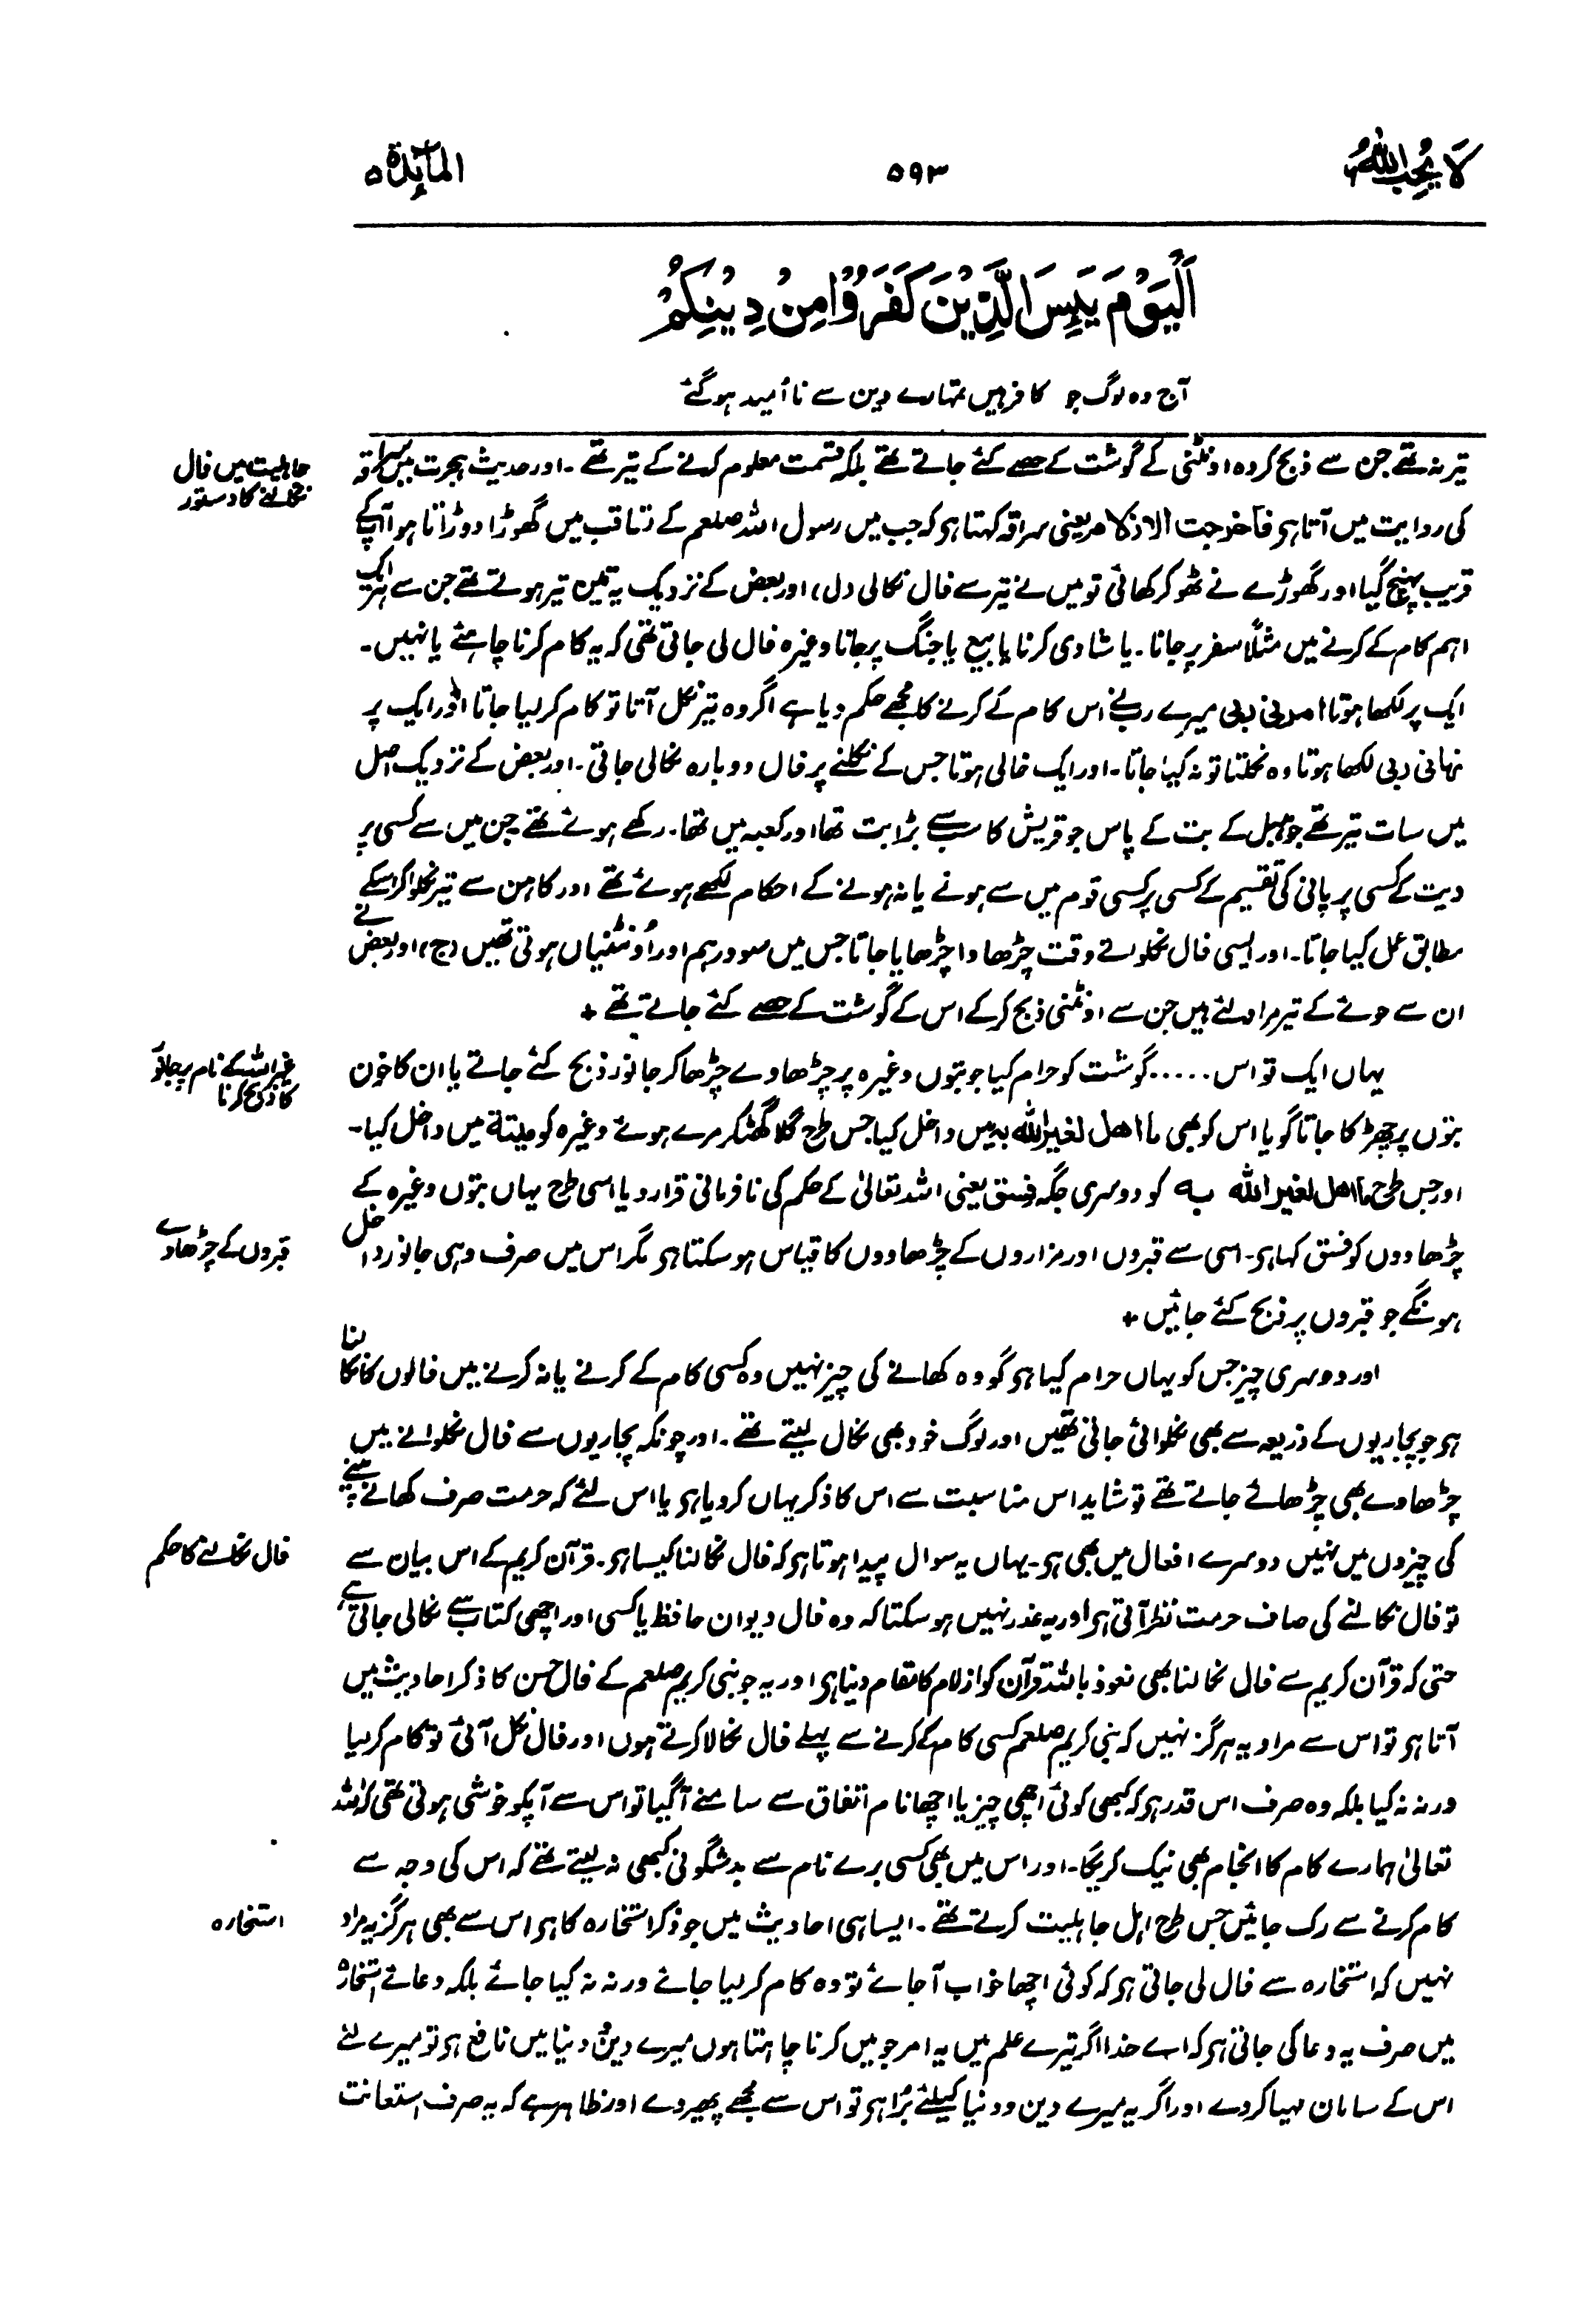 لَا يُحِبُّ اللّٰهُ
۵۹۳
المآئدة ۵
اَلْيَوْمَ يَئِسَ الَّذِيْنَ كَفَرُوْا مِنْ دِيْنِكُمْ
آج وہ لوگ جو کافر ہیں تمہارے دین سے نا اُمید ہوگئے
تیر نہ تھے جن سے ذبح کردہ اونٹنی کے گوشت کے حصے کئے جاتے تھے بلکہ قسمت معلوم کرنے کے تیر تھے۔ اور حدیث ہجرت میں سراقہ
جاہلیت میں فال
نکالنے کا دستور
کی روایت میں آتا ہی فاخرجت الازلام یعنی سراقہ کہتا ہی کہ جب میں رسول اللہ صلعم کے تعاقب میں گھوڑا دوڑاتا ہوا آپکے
قریب پہنچ گیا اور گھوڑے نے ٹھوکر کھائی تو میں نے تیر سے فال نکالی (ل) اور بعض کے نزدیک یہ تین تیر ہوتے تھے جن سے ہر ایک
اہم کام کے کرنے میں مثلاً سفر پر جانا۔ یا شادی کرنا یا بیع یا جنگ پر جانا وغیرہ فال لی جاتی تھی کہ یہ کام کرنا چاہئے یا نہیں۔
ایک پر لکھا ہوتا امرنی ربی میرے ربنے اس کام کے کرنے کا مجھے حکم دیا ہے اگر وہ تیر نکل آتا تو کام کر لیا جاتا اور ایک پر
نہانی ربی لکھا ہوتا وہ نکلتا تو نہ کیا جاتا۔ اور ایک خالی ہوتا جس کے نکلنے پر فال دوبارہ نکالی جاتی۔ اور بعض کے نزدیک اصل
میں سات تیر تھے جو ہبل کے بت کے پاس جو قریش کا سب سے بڑا بت تھا اور کعبہ میں تھا۔ رکھے ہوئے تھے جن میں سے کسی پر
دیت کے کسی پر پانی کی تقسیم کے کسی پر کسی قوم میں سے ہونے یا نہ ہونے کے احکام لکھے ہوئے تھے اور کاہن سے تیر نکلوا کر اسکے
مطابق عمل کیا جاتا۔ اور ایسی فال نکلواتے وقت چڑھاوا چڑھایا جاتا جس میں سو درہم اور اُونٹنیاں ہوتی تھیں (ج) اور بعض نے
ان سے جوئے کے تیر مراد لئے ہیں جن سے اونٹنی ذبح کرکے اس کے گوشت کے حصے کئے جاتے تھے +
یہاں ایک تو اس ..... گوشت کو حرام کیا جو بتوں وغیرہ پر چڑھاوے چڑھا کر جانور ذبح کئے جاتے یا ان کا خون
غیر اللہ کے نام پر جانور
کا ذبح کرنا
بتوں پر چھڑکا جاتا گویا اس کو بھی ما اهل لغير الله به میں داخل کیا جس طرح گلا گھٹکر مرے ہوئے وغیرہ کو میتة میں داخل کیا۔
اور جس طرح ما اهل لغير الله به کو دوسری جگہ فسق یعنی اللہ تعالیٰ کے حکم کی نافرمانی قرار دیا اسی طرح یہاں بتوں وغیرہ کے
چڑھاووں کو فسق کہا ہی۔ اسی سے قبروں اور مزاروں کے چڑھاووں کا قیاس ہو سکتا ہی مگر اس میں صرف وہی جانور داخل
قبروں کے چڑھاوے
ہونگے جو قبروں پر ذبح کئے جائیں +
اور دوسری چیز جس کو یہاں حرام کیا ہی گو وہ کھانے کی چیز نہیں وہ کسی کام کے کرنے یا نہ کرنے میں فالوں کا نکالنا
ہی جو پجاریوں کے ذریعہ سے بھی نکلوائی جاتی تھیں اور لوگ خود بھی نکال لیتے تھے۔ اور چونکہ پجاریوں سے فال نکلوانے میں
چڑھاوے بھی چڑھائے جاتے تھے تو شاید اس مناسبت سے اس کا ذکر یہاں کر دیا ہی یا اس لئے کہ حرمت صرف کھانے پینے
کی چیزوں میں نہیں دوسرے افعال میں بھی ہی۔ یہاں یہ سوال پیدا ہوتا ہی کہ فال نکالنا کیسا ہی۔ قرآن کریم کے اس بیان سے
فال نکالنے کا حکم
تو فال نکالنے کی صاف حرمت نظر آتی ہی اور یہ عذر نہیں ہو سکتا کہ وہ فال دیوان حافظ یا کسی اور اچھی کتاب سے نکالی جاتی ہے
حتی کہ قرآن کریم سے فال نکالنا بھی نعوذ باللہ قرآن کو ازلام کا مقام دینا ہی اور یہ جو نبی کریم صلعم کے فال حسن کا ذکر احادیث میں
آتا ہی تو اس سے مراد یہ ہرگز نہیں کہ نبی کریم صلعم کسی کام کے کرنے سے پہلے فال نکالا کرتے ہوں اور فال نکل آئی تو کام کر لیا
ورنہ نہ کیا بلکہ وہ صرف اس قدر ہی کہ کبھی کوئی اچھی چیز یا اچھا نام اتفاق سے سامنے آگیا تو اس سے آپکو خوشی ہوتی تھی کہ اللہ
تعالیٰ ہمارے کام کا انجام بھی نیک کریگا۔ اور اس میں بھی کسی برے نام سے بدشگونی کبھی نہ لیتے تھے کہ اس کی وجہ سے
کام کرنے سے رک جائیں جس طرح اہل جاہلیت کرتے تھے۔ ایسا ہی احادیث میں جو ذکر استخارہ کا ہی اس سے بھی ہرگز یہ مراد
استخارہ
نہیں کہ استخارہ سے فال لی جاتی ہی کہ کوئی اچھا خواب آجائے تو وہ کام کر لیا جائے ورنہ نہ کیا جائے بلکہ دعائے استخارہ
میں صرف یہ دعا کی جاتی ہی کہ اے خدا اگر تیرے علم میں یہ امر جو میں کرنا چاہتا ہوں میرے دین و دنیا میں نافع ہی تو میرے لئے
اس کے سامان مہیا کر دے اور اگر یہ میرے دین و دنیا کیلئے بُرا ہی تو اس سے مجھے پھیر دے اور ظاہر ہے کہ یہ صرف استعانت